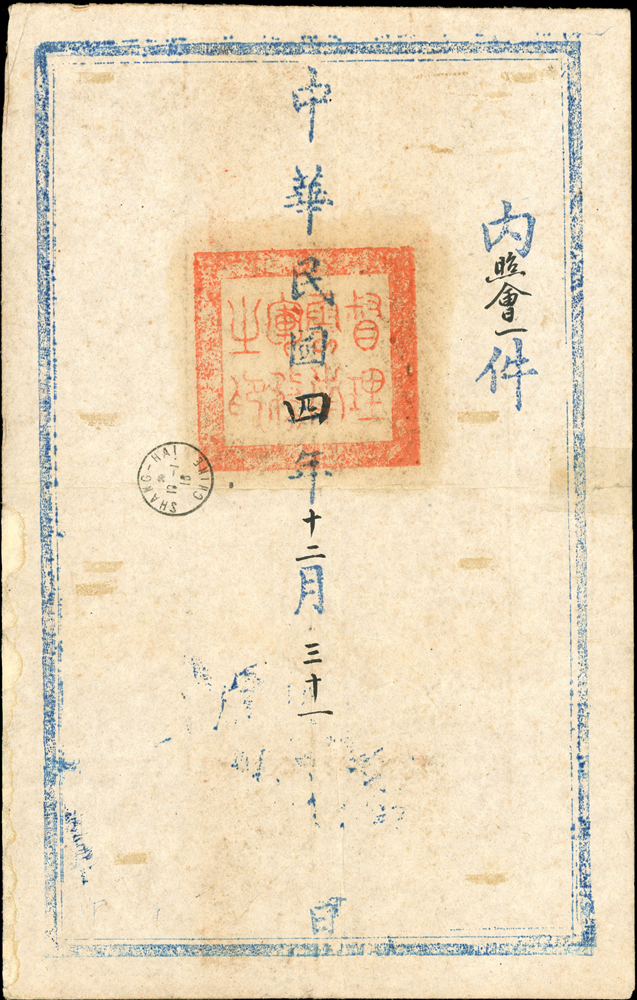 内照會一件
中華民國四年十二月三十一日
督理
之印
SHANG-HAI CHINE